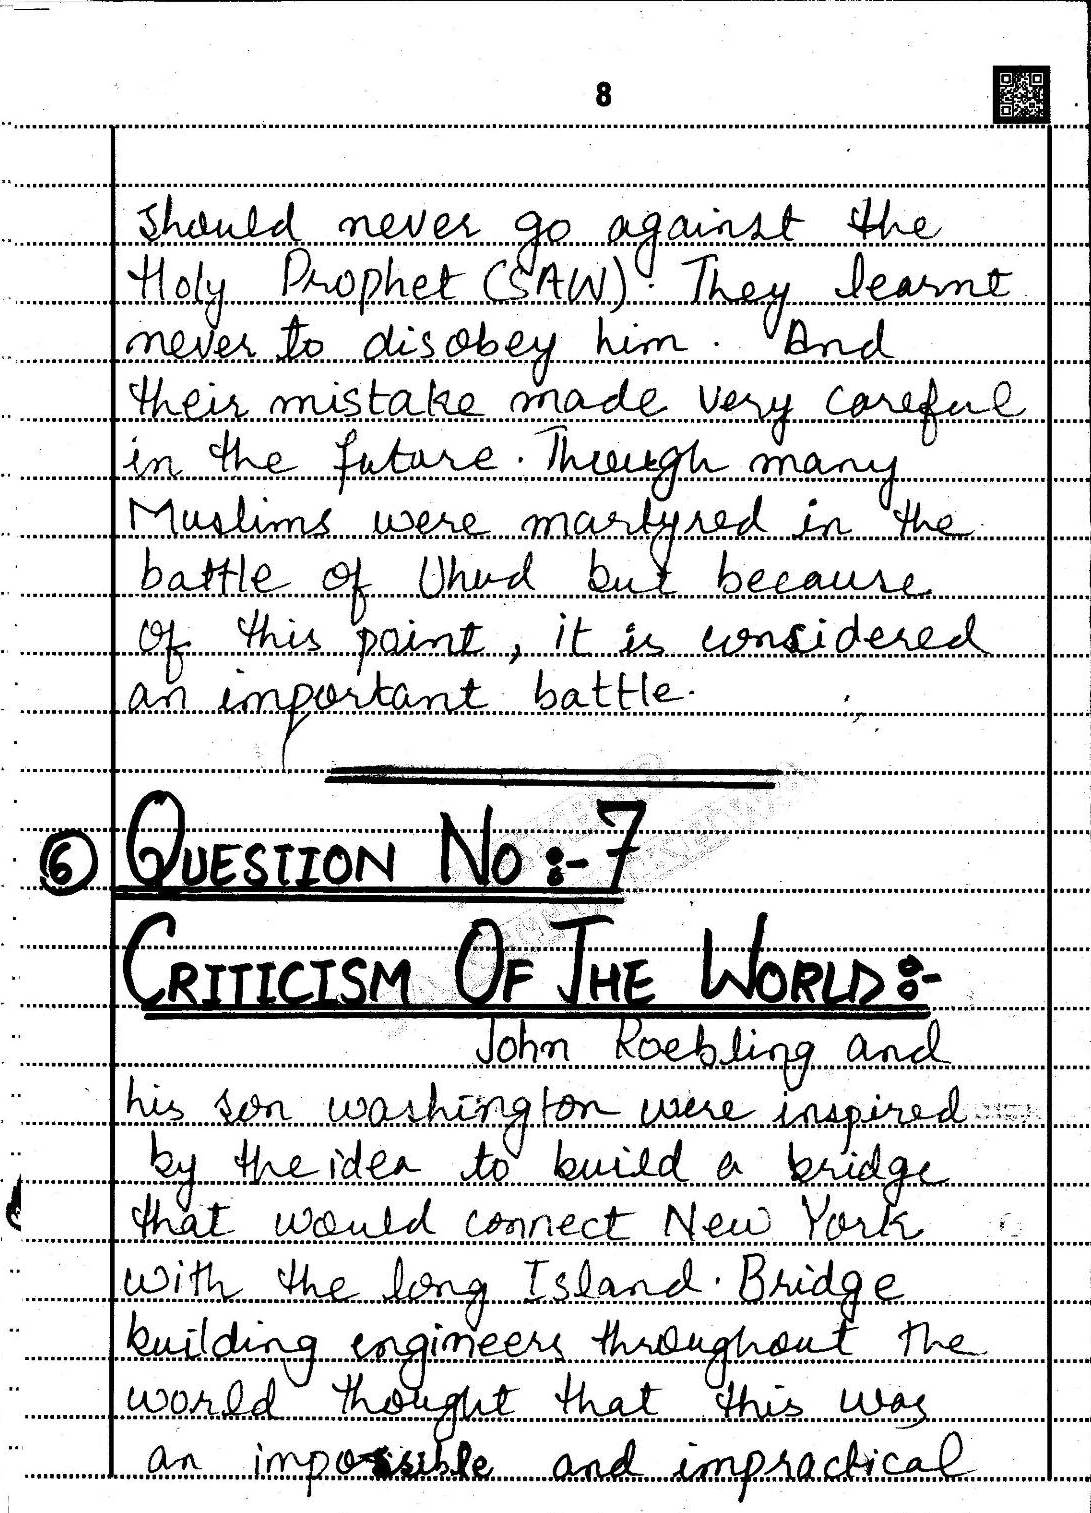 8
should never go against the
Holy Prophet (SAW). They learnt
never to disobey him. And
their mistake made very careful
in the future. Though many
Muslims were martyred in the
battle of Uhud but because
of this point, it is considered
an important battle.
6 QUESTION NO :- 7
CRITICISM OF THE WORLD:-
John Roebling and
his son washington were inspired
by the idea to build a bridge
that would connect New York
with the long Island. Bridge
building engineers throughout the
world thought that this was
an impossible and impractical